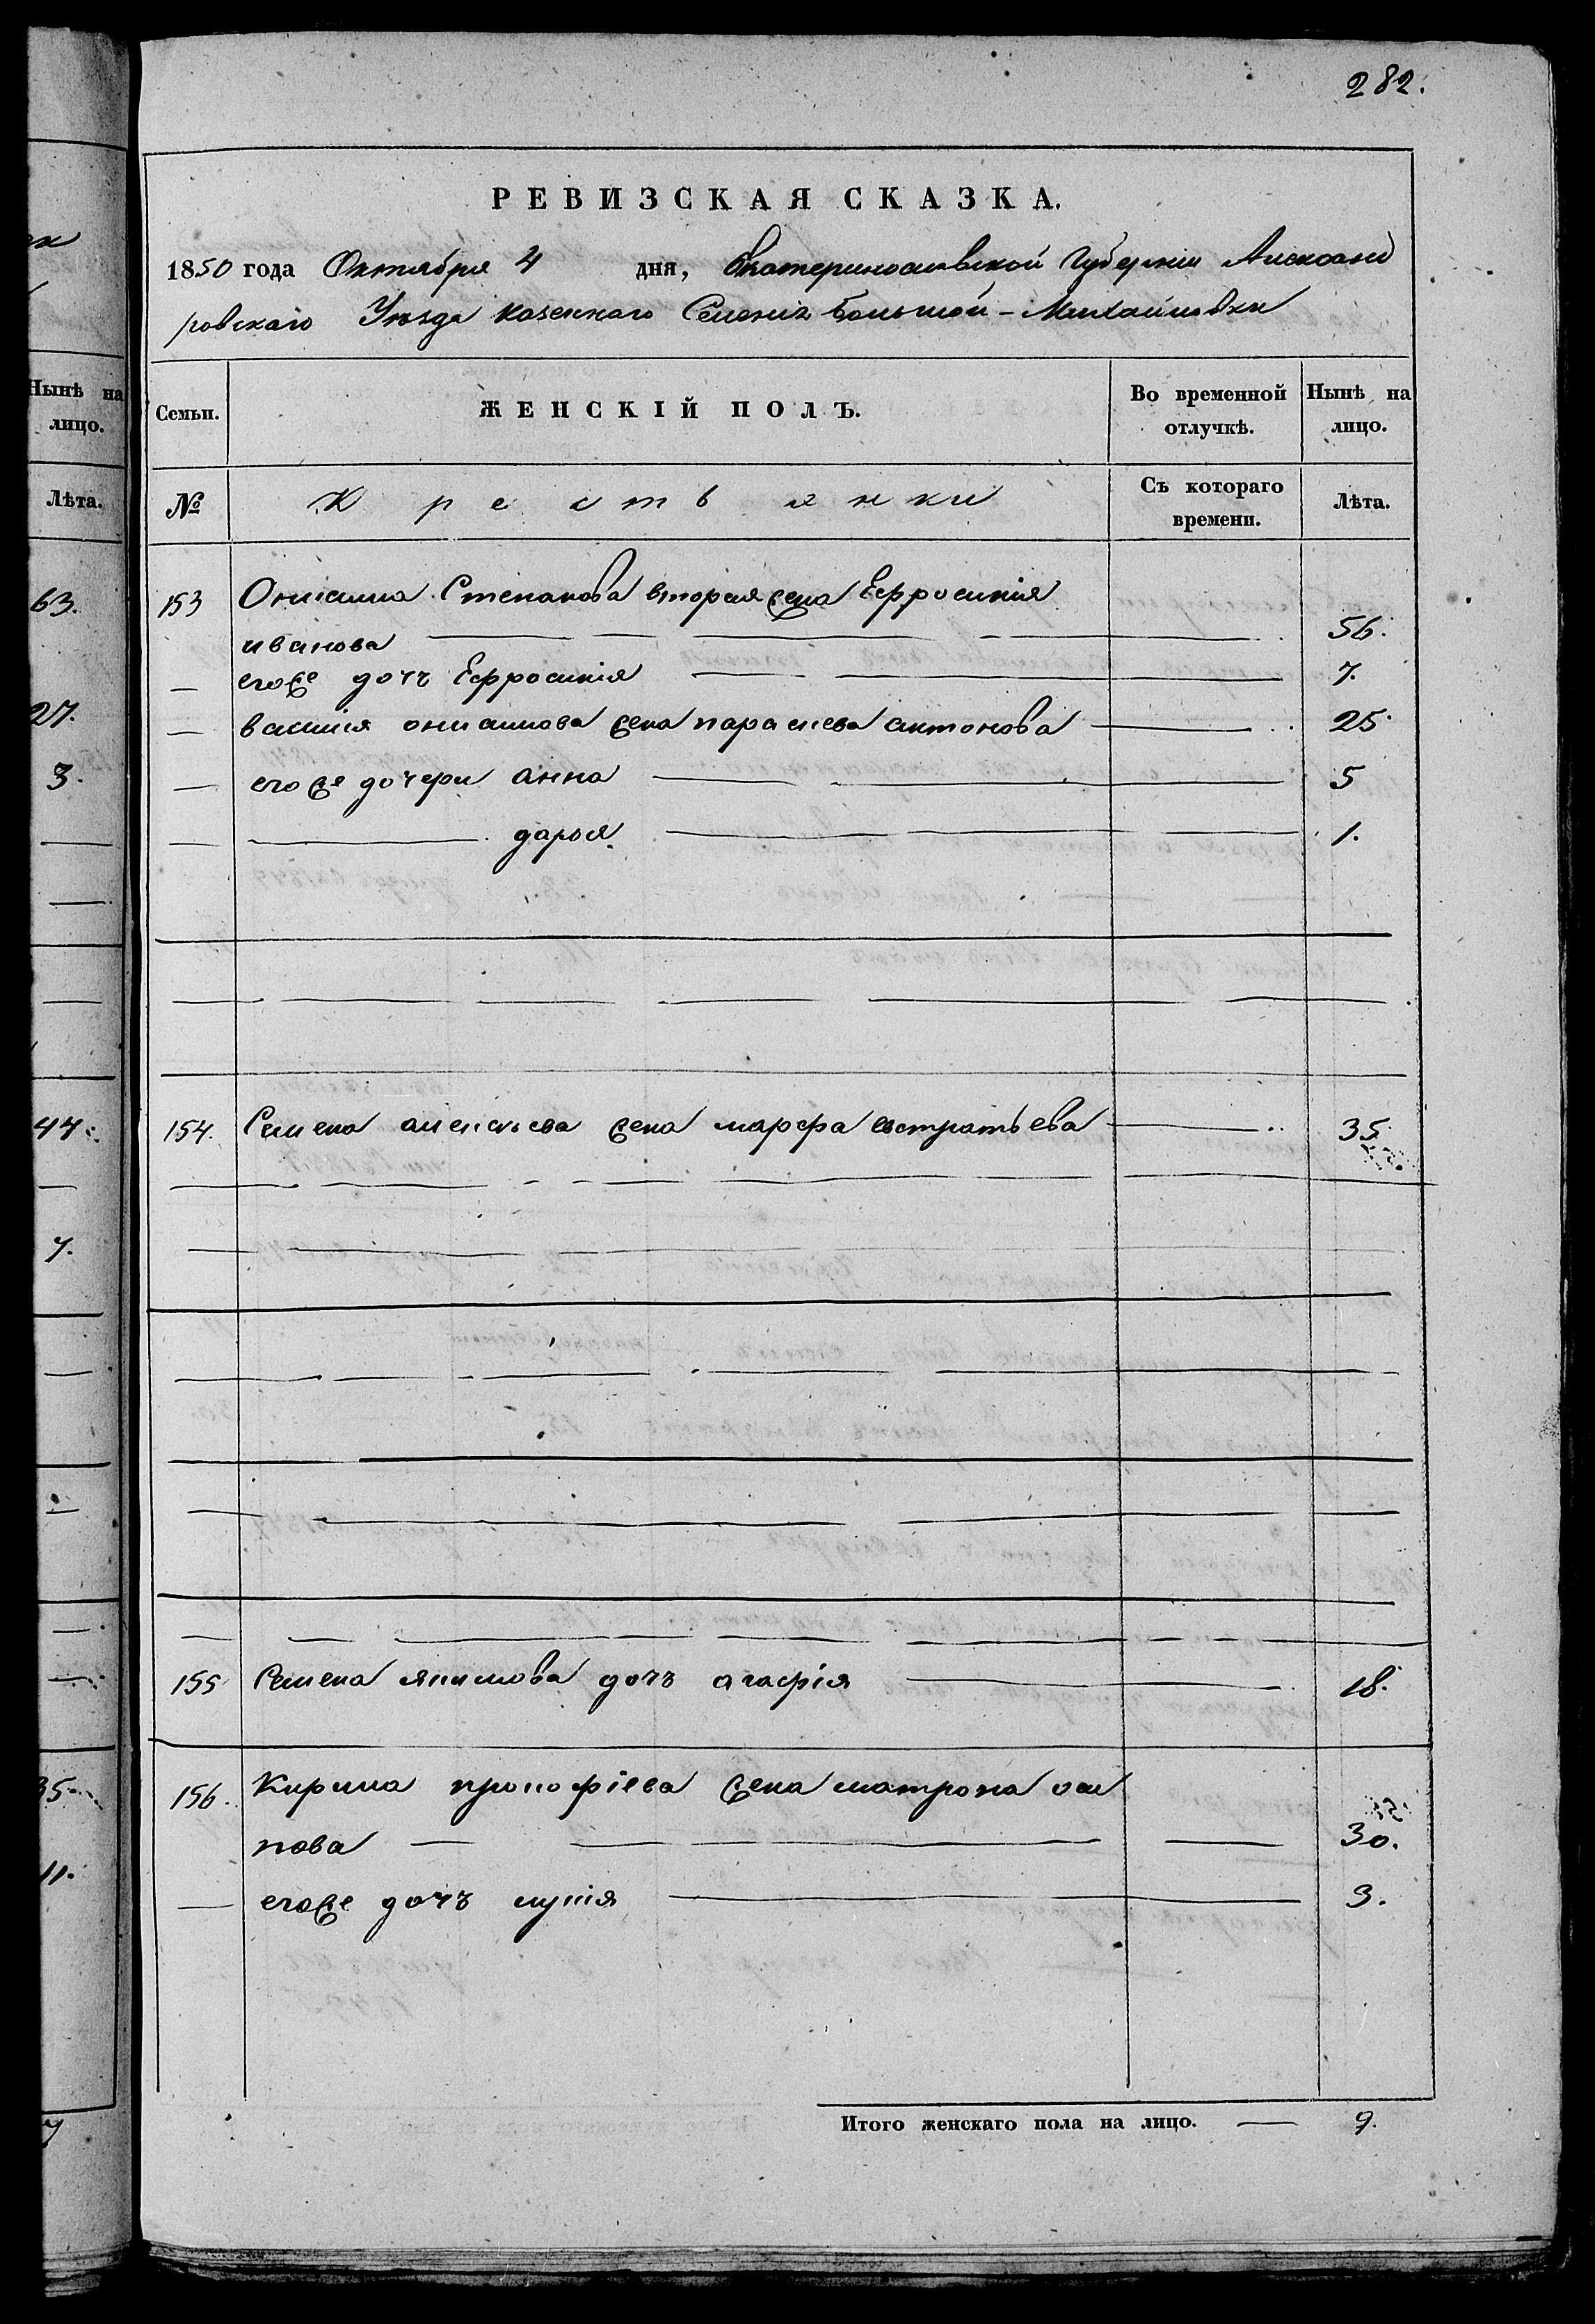 282.
РЕВИЗСКАЯ СКАЗКА.
1850 года Октября 4 дня, Екатеринославской Губерніи Александ
ровскаго Уѣзда казеннаго Селенія Большой-Михайловки
Нынѣ на
лицо.
Семьи.
ЖЕНСКІЙ ПОЛЪ.
Во временной
отлучкѣ.
Нынѣ на
лицо.
Лѣта.
№
Крестьянки
Съ котораго
времени.
Лѣта.
63.
153 Онисима Степанова вторая жена Ефросинія
иванова 56.
егоже дочъ Ефросинія 7.
27.
василія онисимова жена параскева антонова 25.
3.
егоже дочери анна 5
дарья 1.
44.
154. Семена алексѣева жена марфа евстратьева 35.
7.
155 Семена якимова дочъ агафія 18.
35.
156. Кирила прокофіева жена матрона оси
пова 30.
11.
егоже дочъ лукія 3.
Итого женскаго пола на лицо. 9.